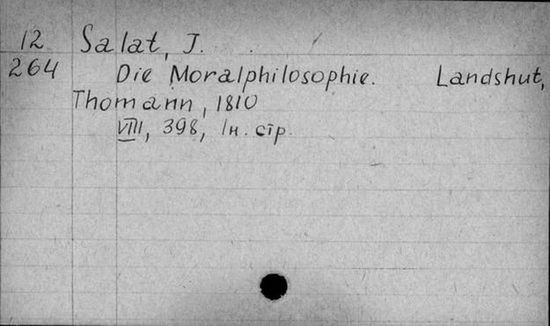 12 Salat, J.
264 Die Moralphilosophie. Landshut,
Thomann, 1810
VIII, 398, 1н. стр.